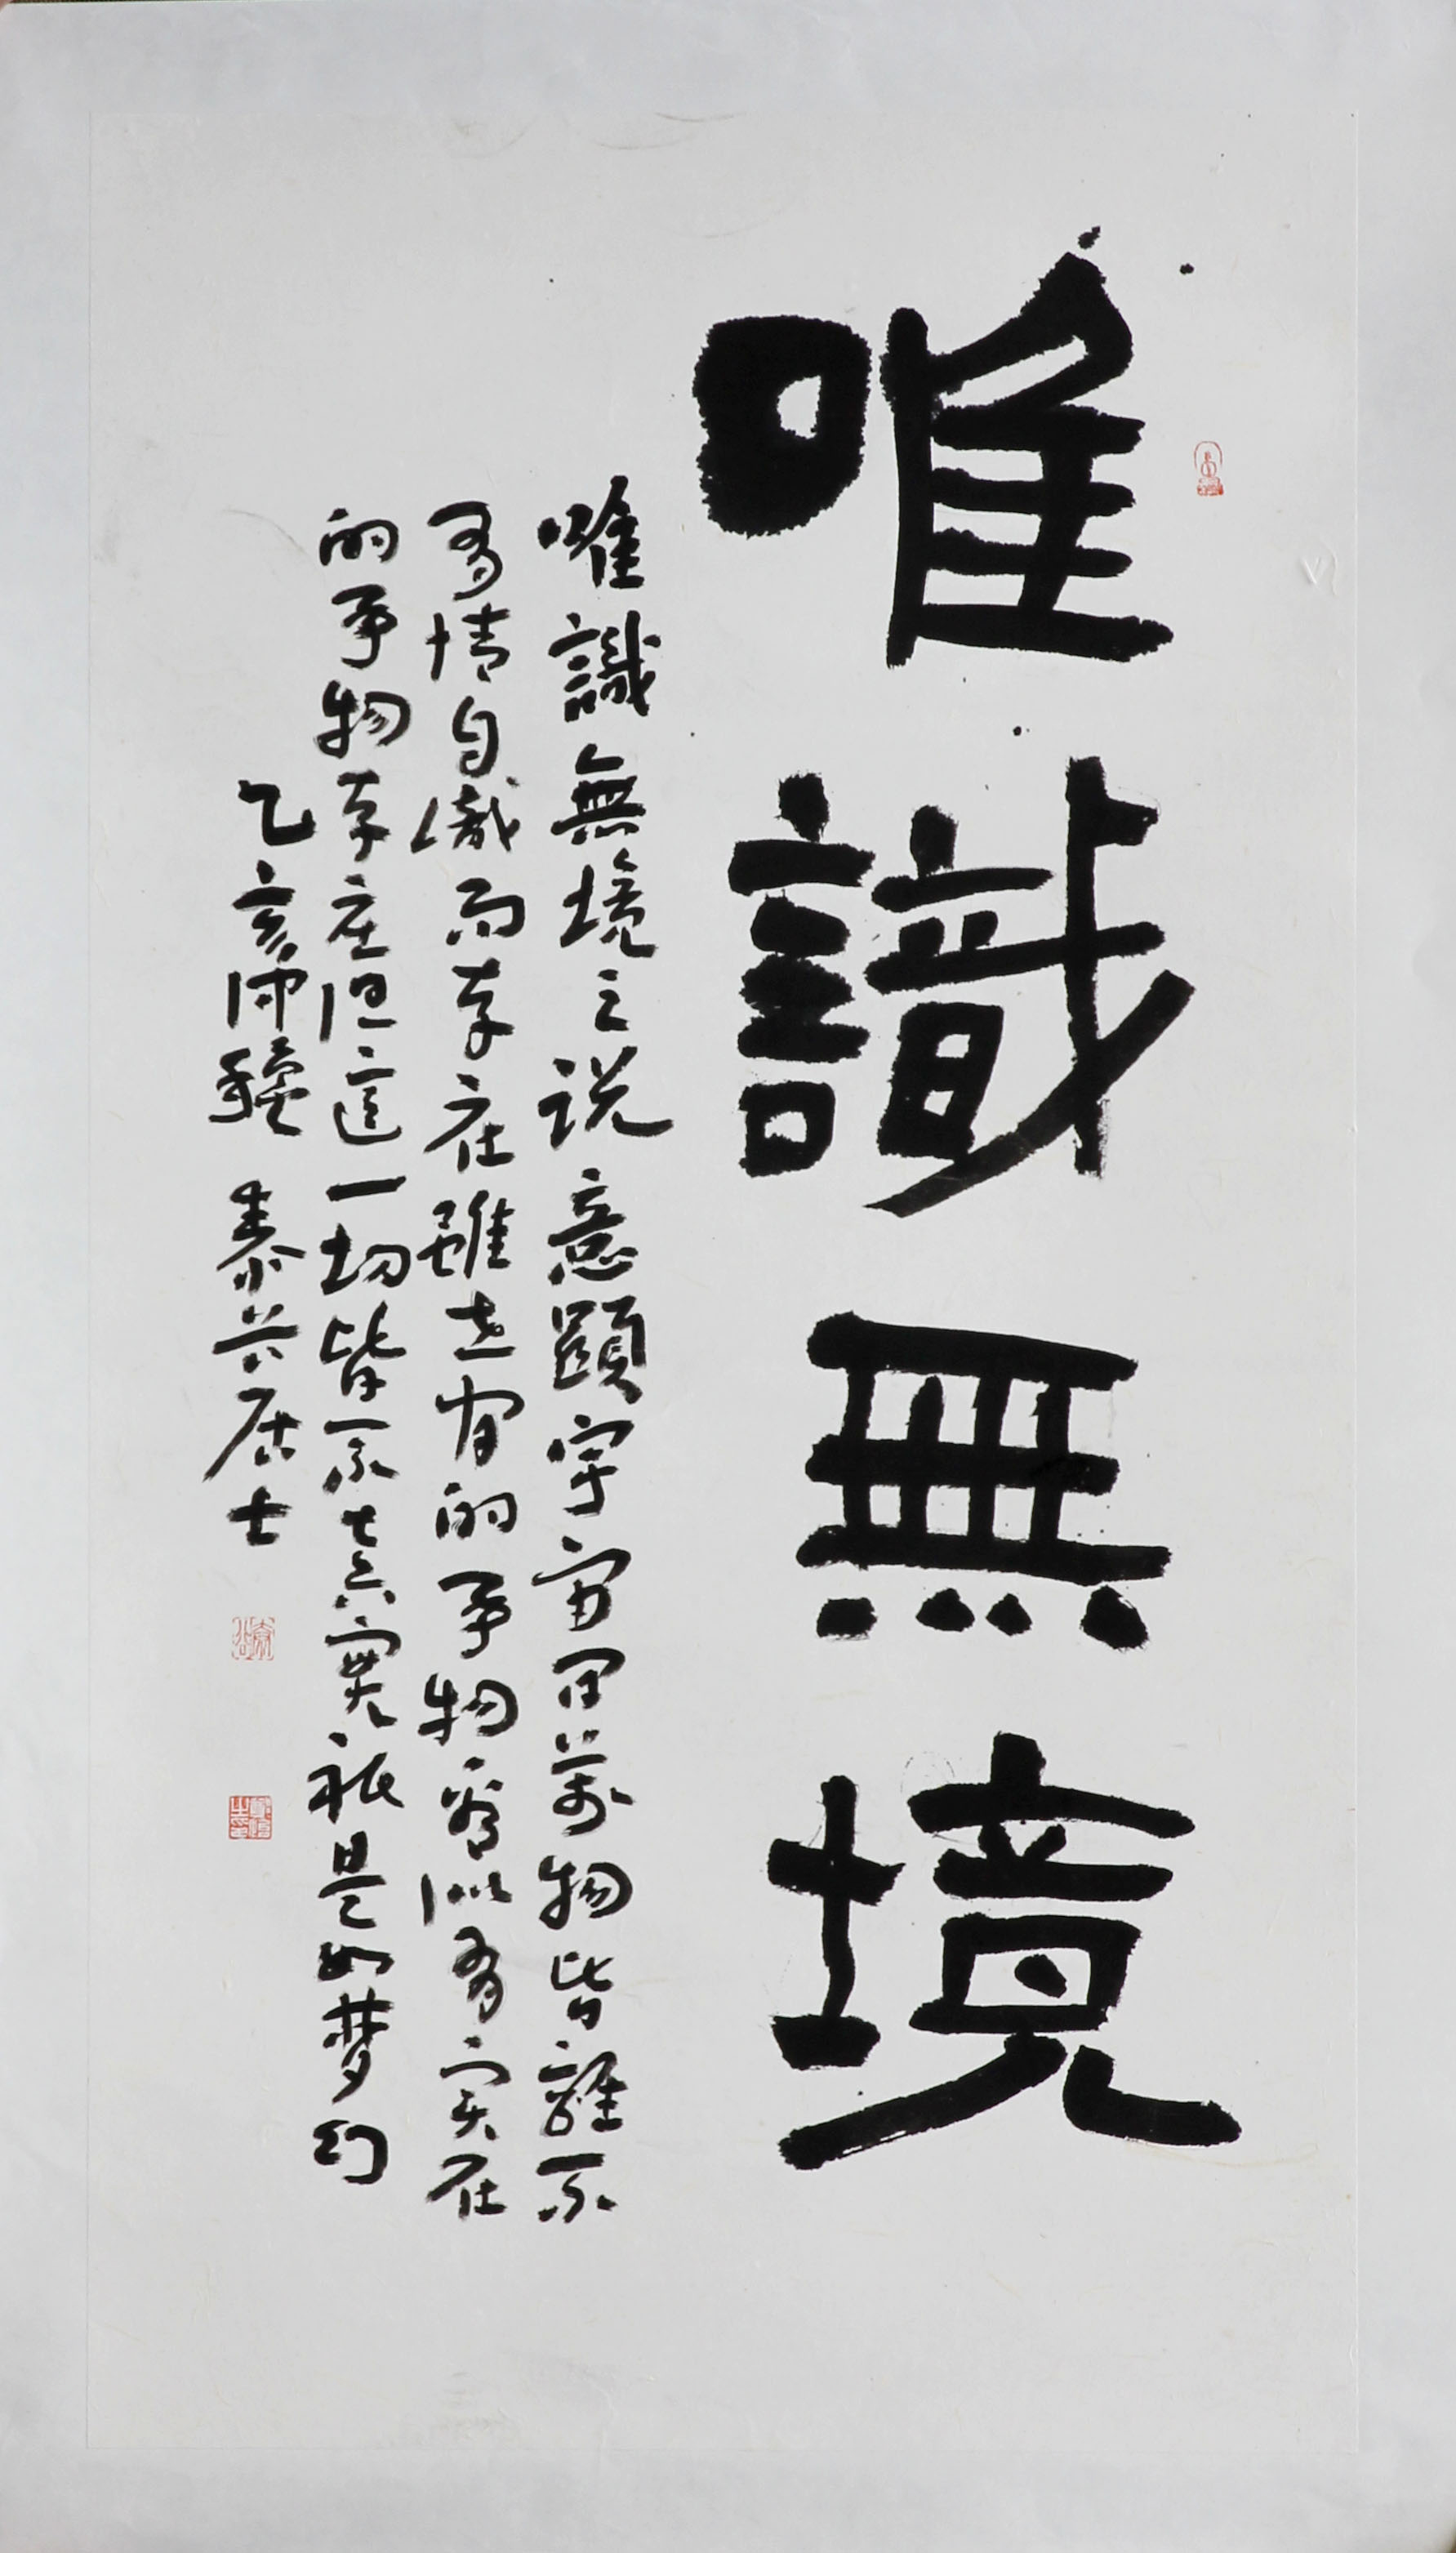 唯識無境
唯識無境之说意顕宇宙间萬物皆離不
有情自識而存在雖然有的事物看似有实在
的事物存在但這一切皆不真實祇是如梦幻
乙亥仲穐 泰芸居士